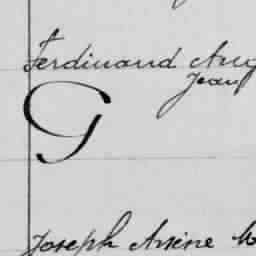 Ferdinand Aug
Jean
G
Joseph Arsène